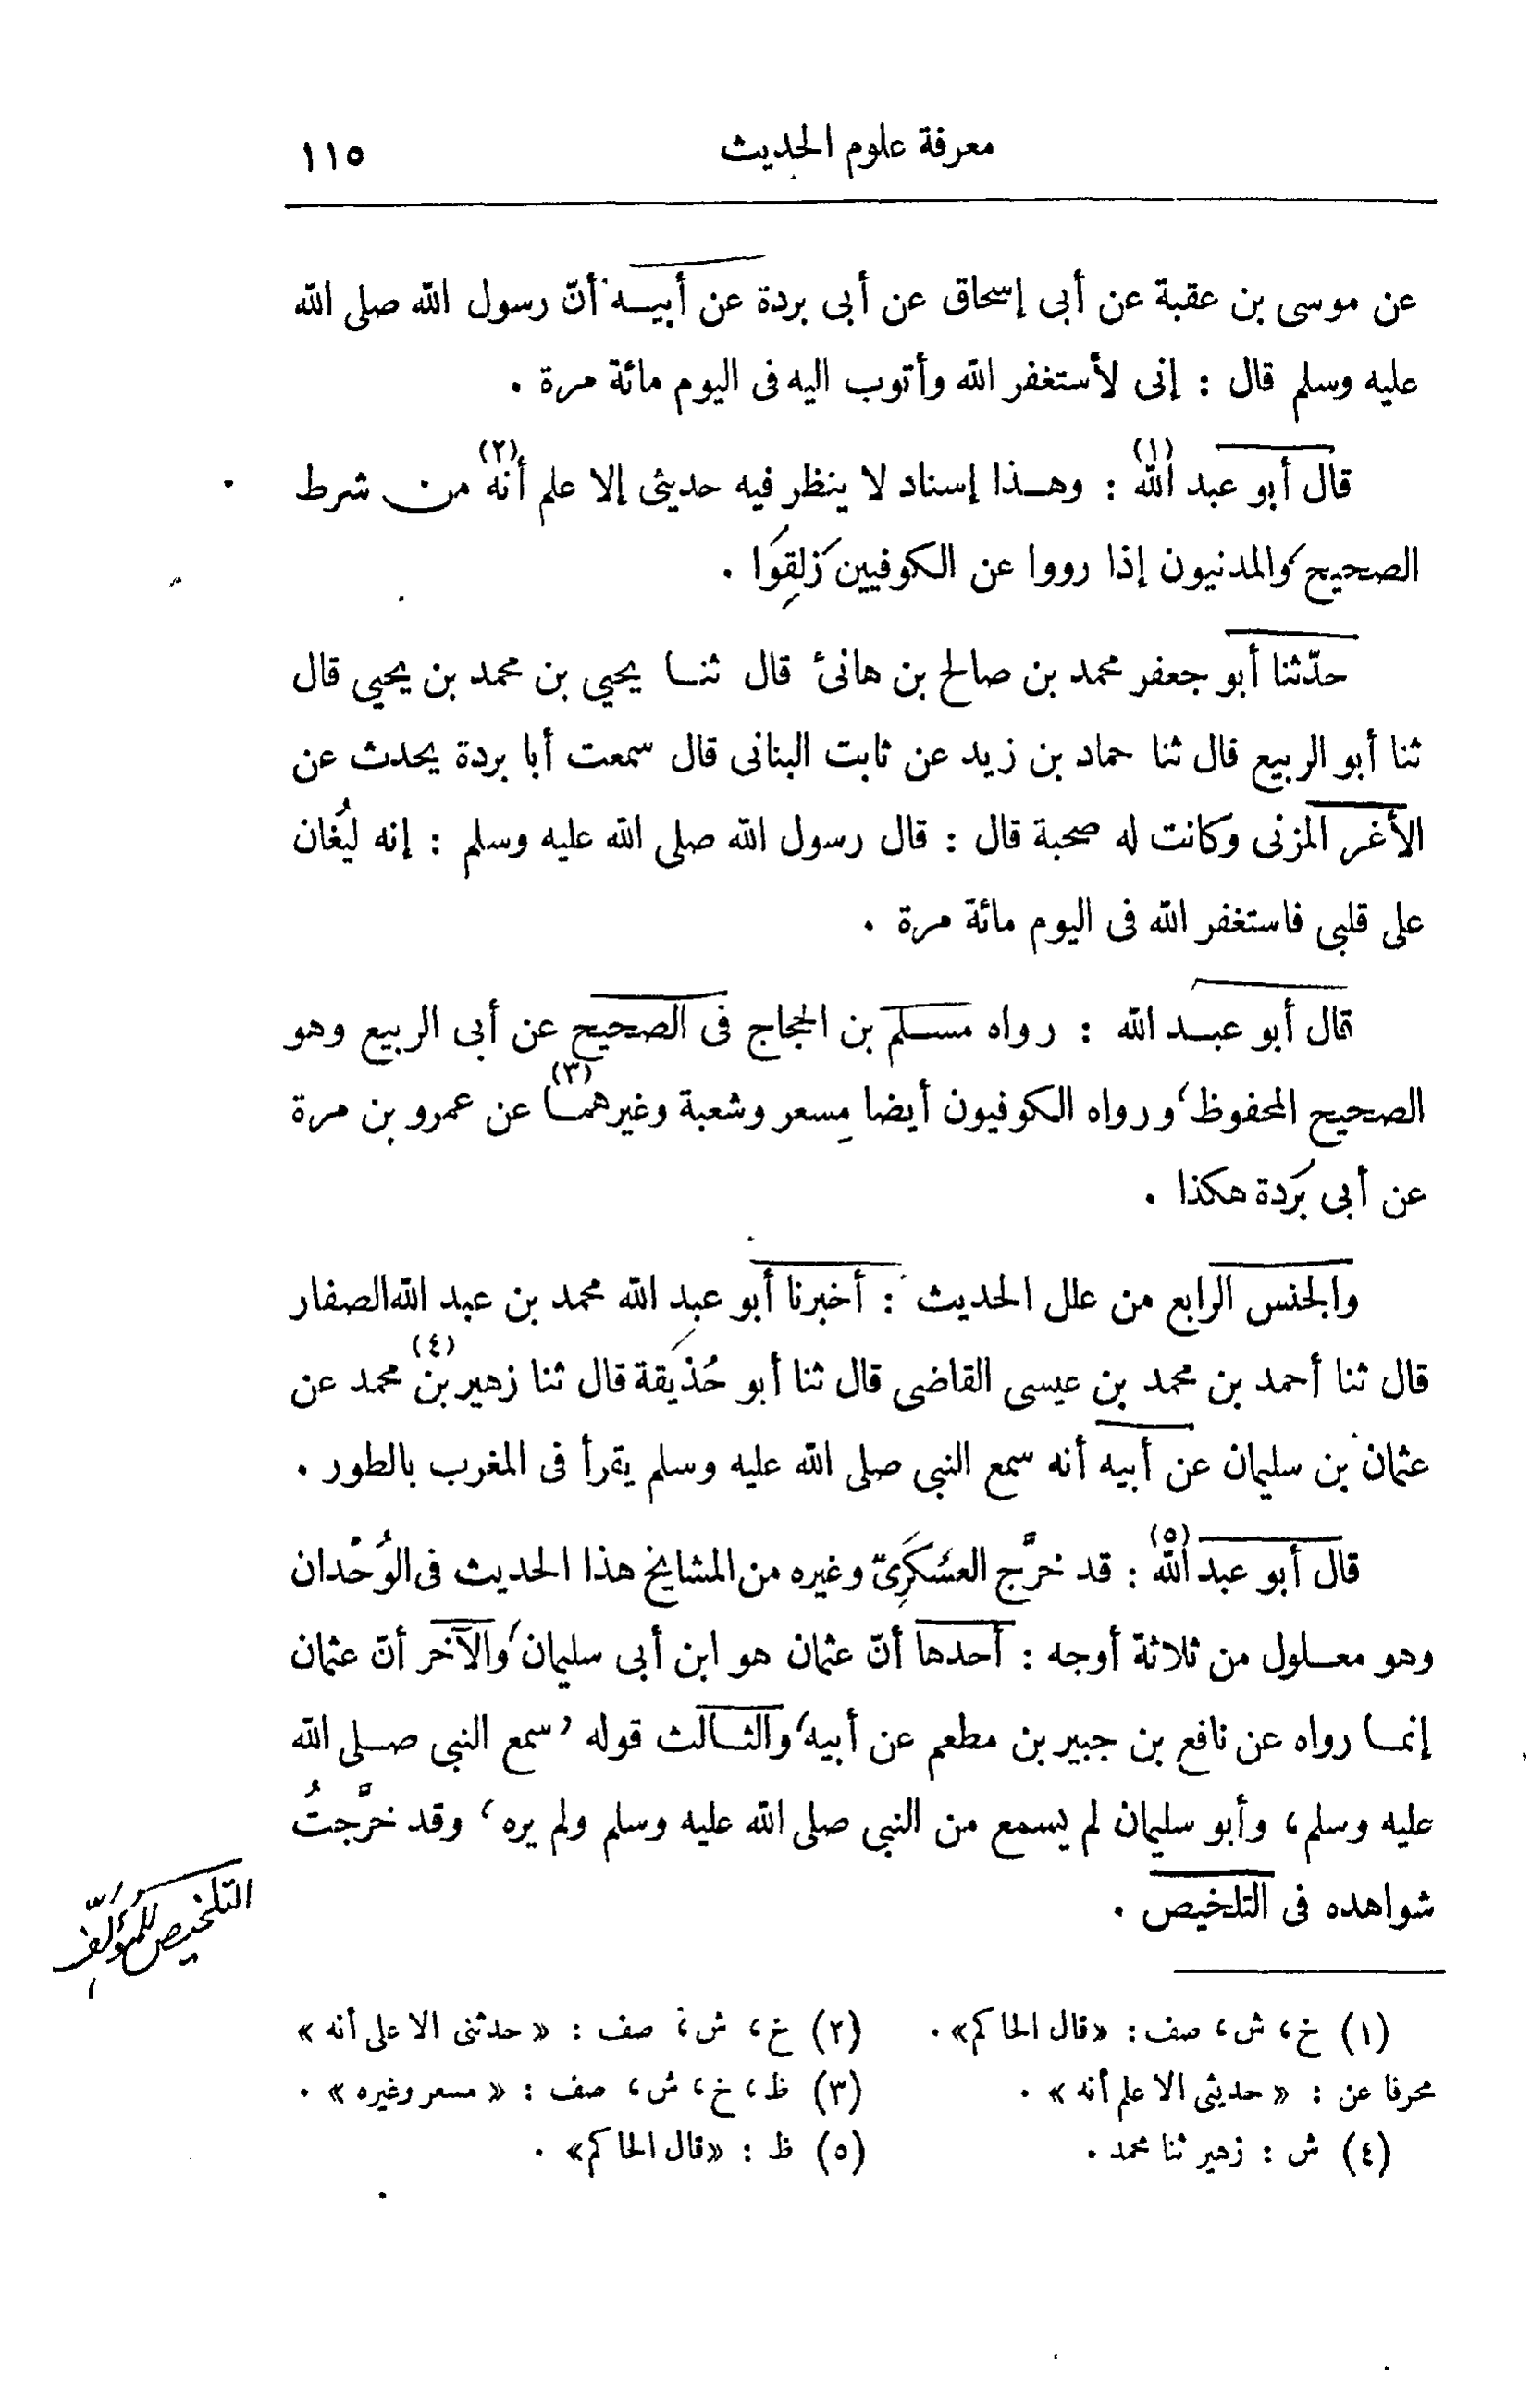 معرفة علوم الحديث ١١٥
عن موسى بن عقبة عن أبى إسحاق عن أبى بردة عن أبيــه أنّ رسول الله صلى الله
عليه وسلم قال : إنى لأستغفر الله وأتوب اليه فى اليوم مائة مرة .
قال أبو عبد الله (١) : وهــذا إسناد لا ينظر فيه حديثى إلا علم أنه (٢) من شرط
الصحيح، والمدنيون إذا رووا عن الكوفيين زَلِقِوُا .
حدّثنا أبو جعفر محمد بن صالح بن هانئ قال ثنــا يحيى بن محمد بن يحيى قال
ثنا أبو الربيع قال ثنا حماد بن زيد عن ثابت البنانى قال سمعت أبا بردة يحدث عن
الأغر المزنى وكانت له صحبة قال : قال رسول الله صلى الله عليه وسلم : إنه ليُغان
على قلبى فاستغفر الله فى اليوم مائة مرة .
قال أبو عبــد الله : رواه مســلم بن الحجاج فى الصحيح عن أبى الربيع وهو
الصحيح المحفوظ، ورواه الكوفيون أيضا مِسعر وشعبة وغيرهمــا (٣) عن عمرو بن مرة
عن أبى بُردة هكذا .
والجنس الرابع من علل الحديث : أخبرنا أبو عبد الله محمد بن عبد الله الصفار
قال ثنا أحمد بن محمد بن عيسى القاضى قال ثنا أبو حُذيقة قال ثنا زهير بن (٤) محمد عن
عثمان بن سليمان عن أبيه أنه سمع النبى صلى الله عليه وسلم يقرأ فى المغرب بالطور .
قال أبو عبد الله (٥) : قد خرَّج العسْكَرِىّ وغيره من المشايخ هذا الحديث فى الوُحْدان
وهو معــلول من ثلاثة أوجه : أحدها أنّ عثمان هو ابن أبى سليمان، والآخر أنّ عثمان
إنمــا رواه عن نافع بن جبير بن مطعم عن أبيه، والثــالث قوله ’سمع النبى صــلى الله
عليه وسلم، وأبو سليمان لم يسمع من النبى صلى الله عليه وسلم ولم يره، وقد خرَّجتُ
شواهده فى التلخيص .
التلخيص للمؤلّف
(١) خ، ش، صف : «قال الحاكم» . (٢) خ، ش، صف : « حدثنى الا على أنه »
محرفا عن : « حديثى الا علم أنه » . (٣) ظ، خ، ش، صف : « مسعر وغيره » .
(٤) ش : زهير ثنا محمد . (٥) ظ : «قال الحاكم» .